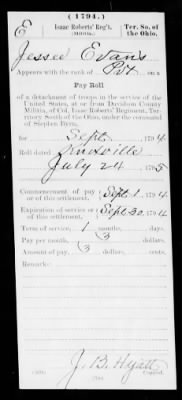 (1794.)
E Isaac Roberts' Reg't, Ter. So. of
Militia. the Ohio.
Jesse Evans
Appears with the rank of Pvt on a
Pay Roll
of a detachment of troops in the service of the
United States, at or from Davidson County
Militia, of Col. Isaac Roberts' Regiment, Ter-
ritory South of the Ohio, under the command
of Stephen
for Sept. , 1794
Roll dated Knoxville
July 24 1795
Commencement of pay Sept. 1, 1794
Expiration of service or
of this settlement. Sept. 30, 1794
Term of service, 1 months, days.
Pay per month, 3 dollars,
Amount of pay, 3 dollars, cents.
Remarks:
J. B. Hyatt
Copyist.